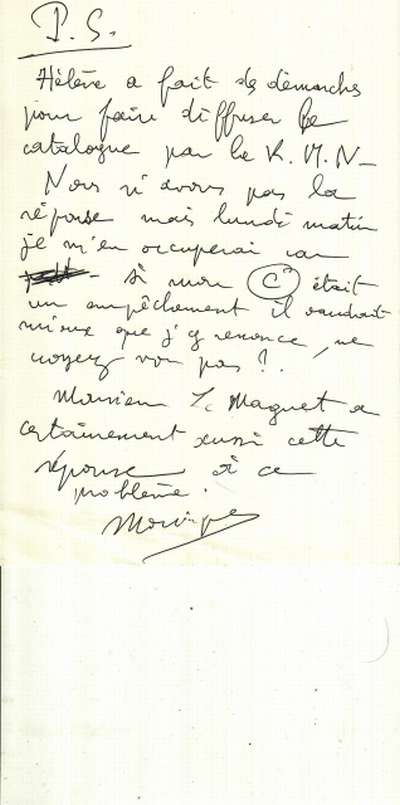 P.S.
Hélène a fait des démarches
pour faire diffuser le
catalogue par la R.M.N –
Nous n'avons pas la
réponse mais lundi matin
je m'en occuperai car
– Si mon C était
un empêchement il vaudrait
mieux que j'y renonce, ne
croyez vous pas ?.
Monsieur Le Maguet a
certainement aussi cette
réponse à ce
problème.